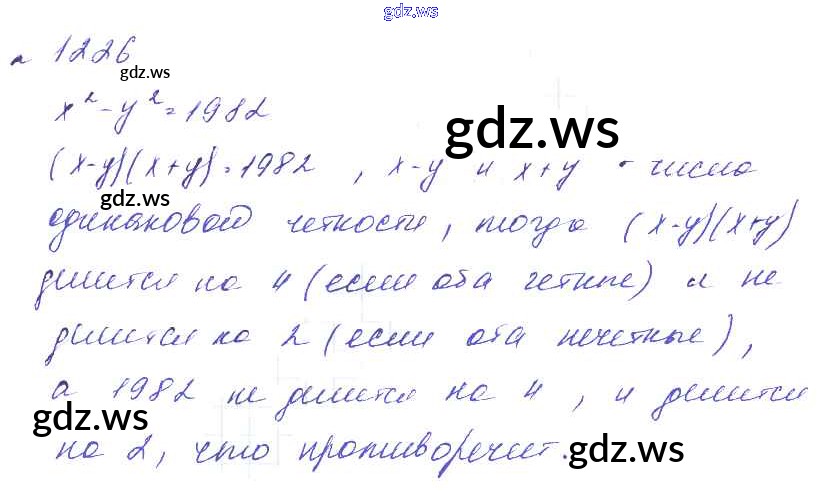 gdz.ws
1226
gdz.ws
x² - y² = 1982
gdz.ws
(x-y)(x+y) = 1982 , x-y и x+y - числа
gdz.ws
одинаковой четкости, тогда (x-y)(x+y)
делится на 4 (если оба четные) и не
делится на 2 (если оба нечетные),
а 1982 не делится на 4 , и делится
gdz.ws
на 2, что противоречит.
gdz.ws